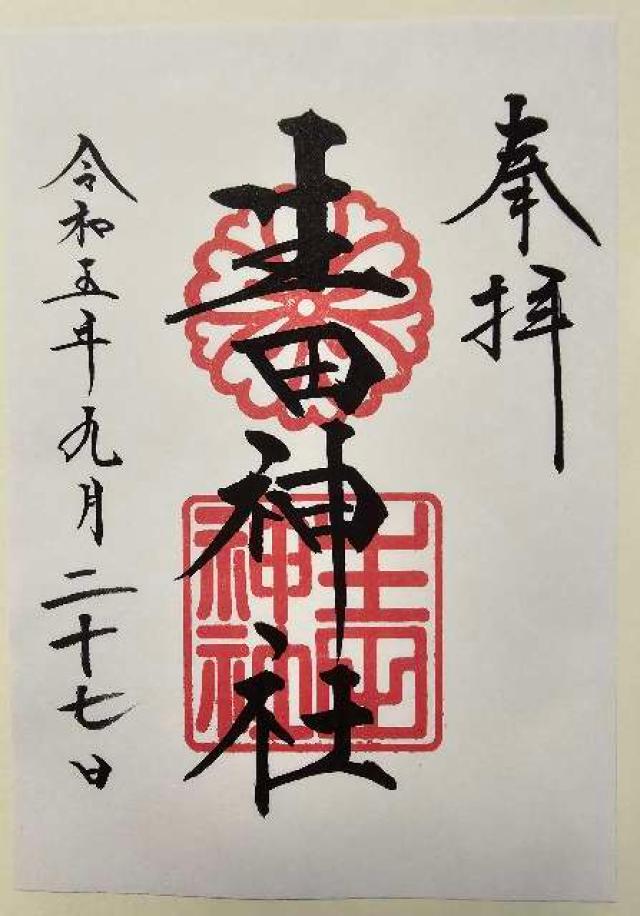 奉拝
生田神社
生田
神社
令和五年九月二十七日